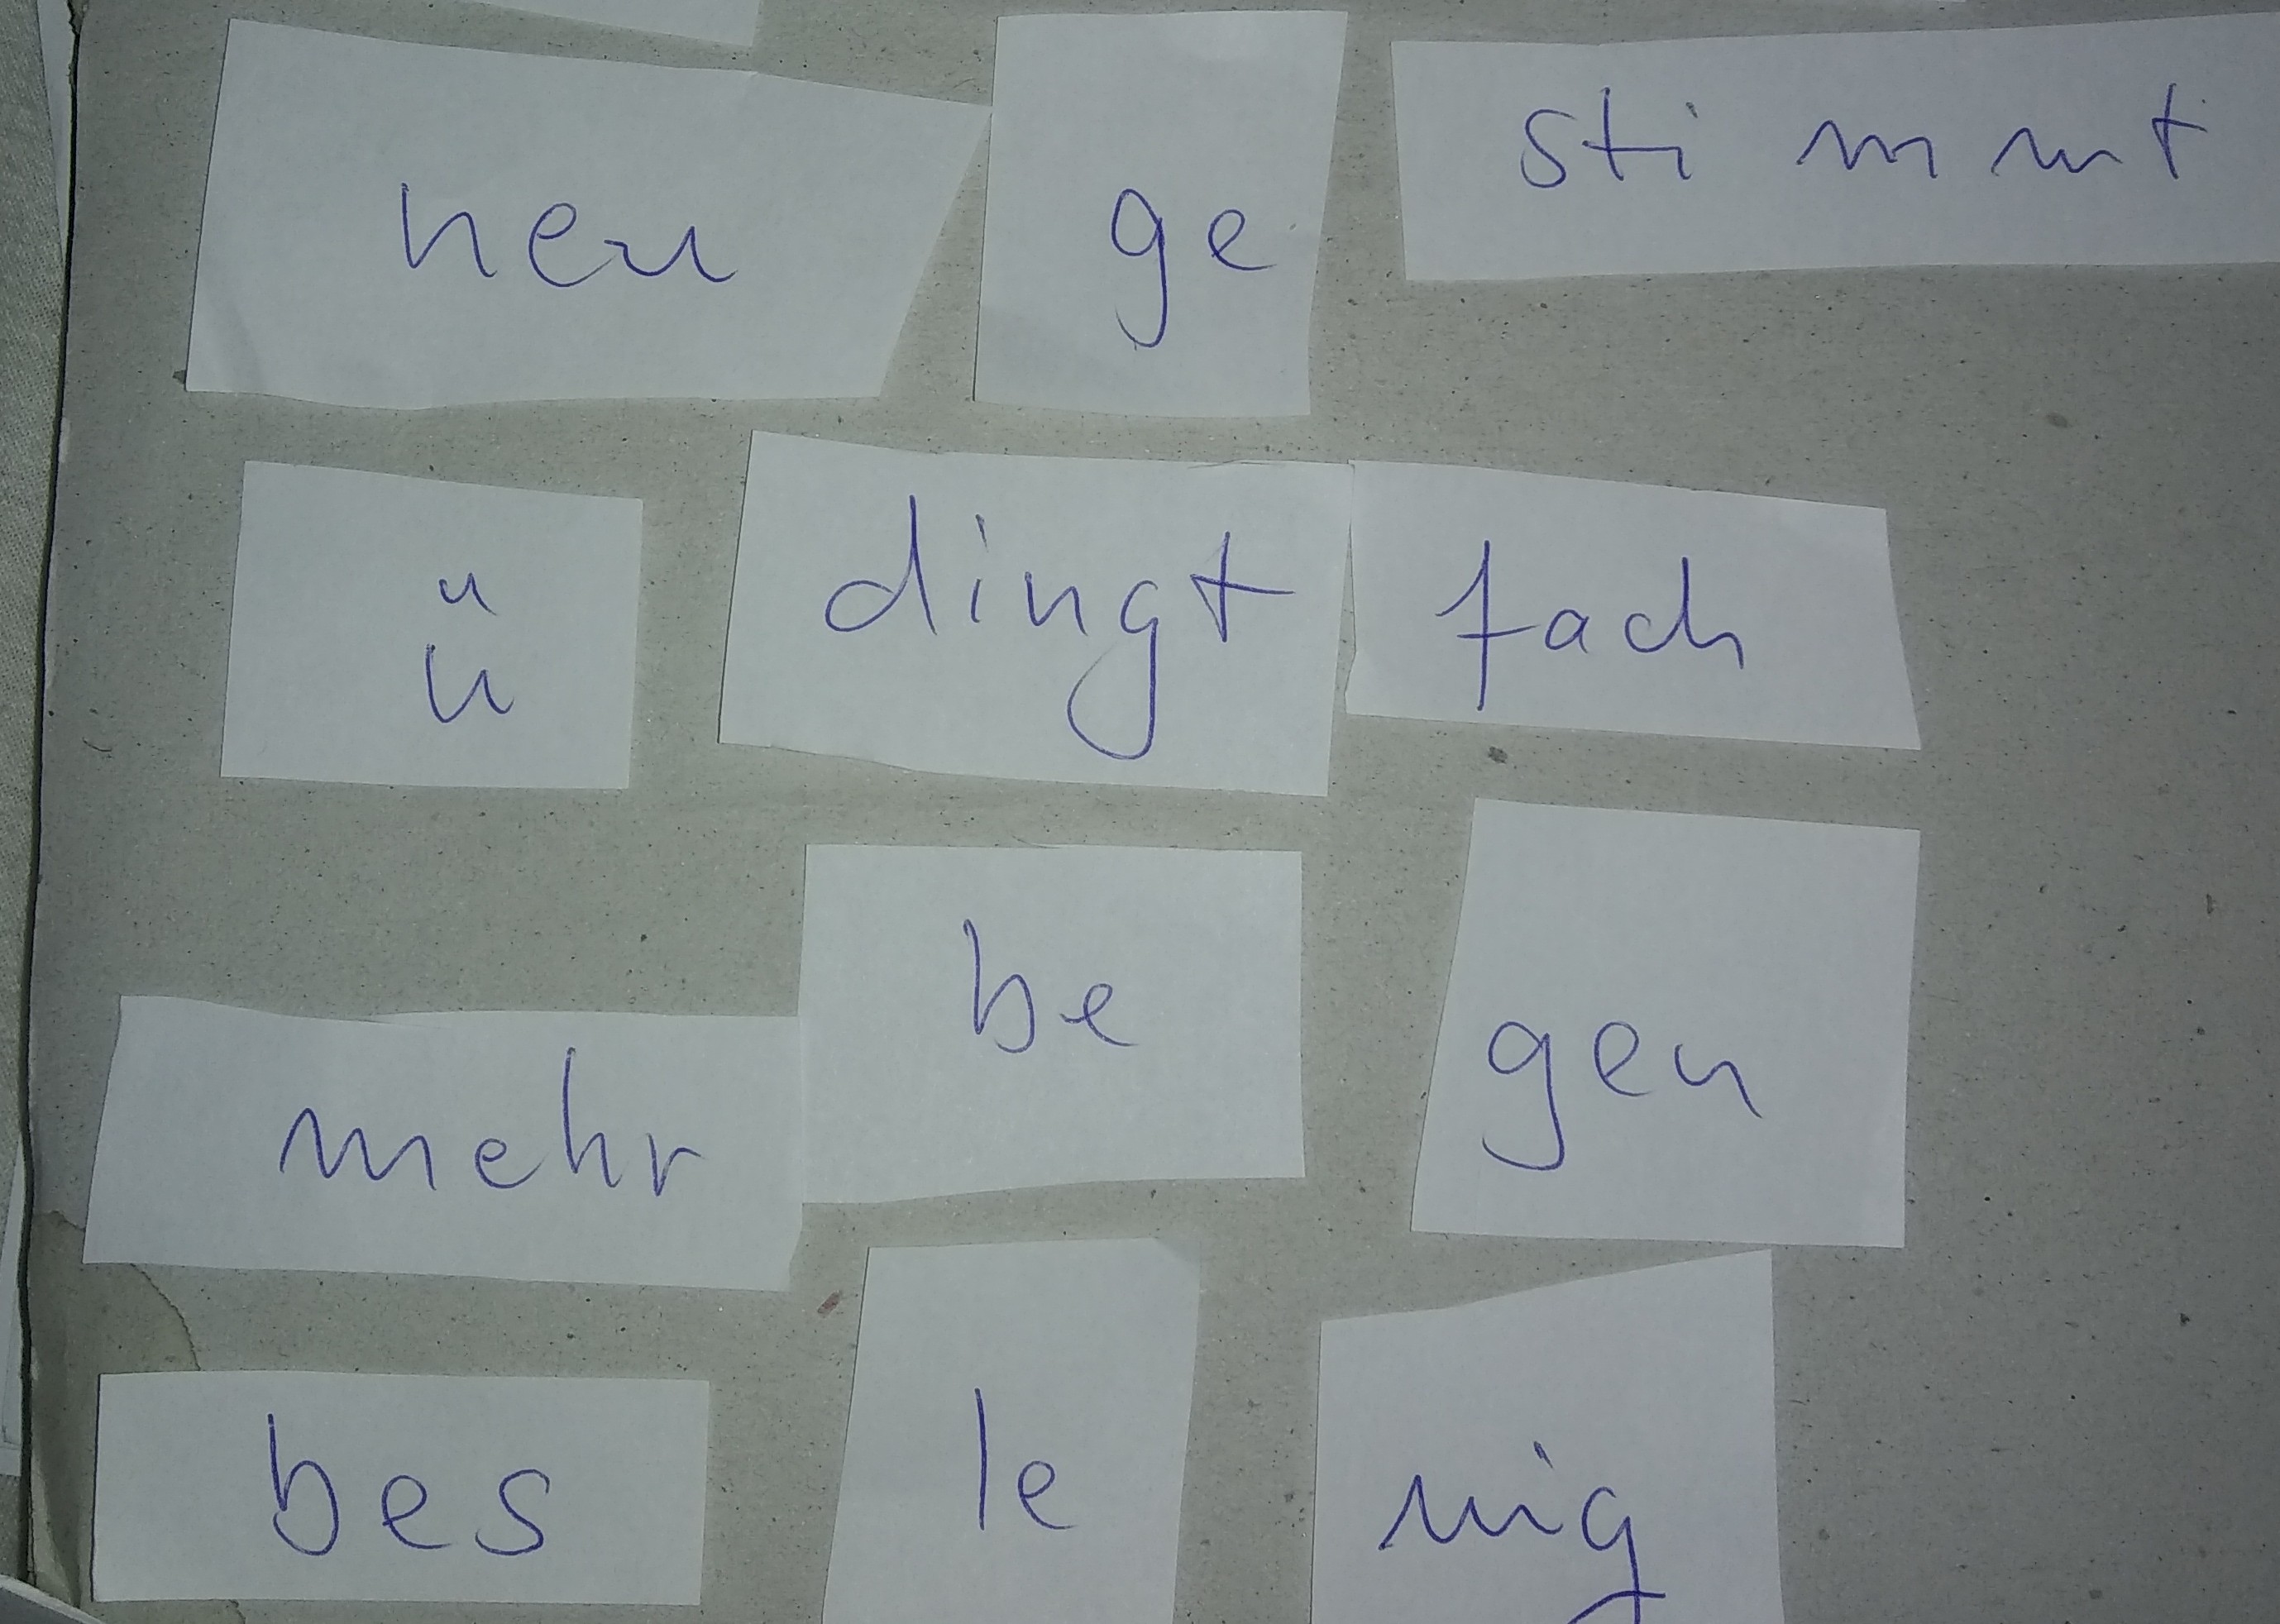 neu ge stimmt
ü dingt fach
mehr be gen
bes le nig